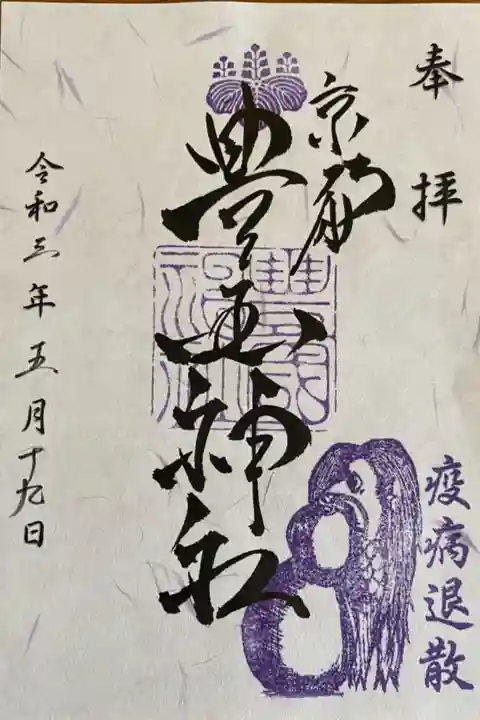 奉拝
京都
豊国神社
豊國神社
疫病退散
令和三年五月十九日